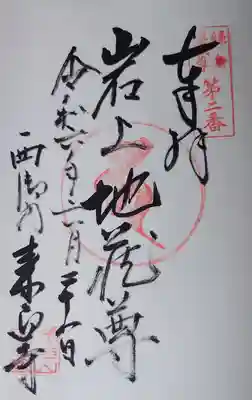 第二番
奉拝
岩上地蔵尊
令和六年六月二十一日
西御門 来迎寺